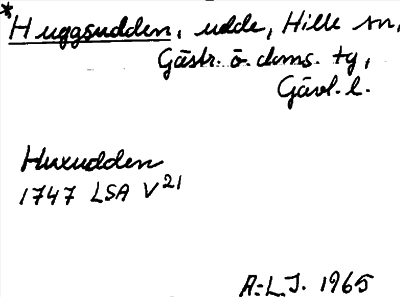 *Huggsudden, udde, Hille sn,
Gästr. ö. doms. tg,
Gävl. l.
Huxudden
1747 LSA V21
A-L.J. 1965